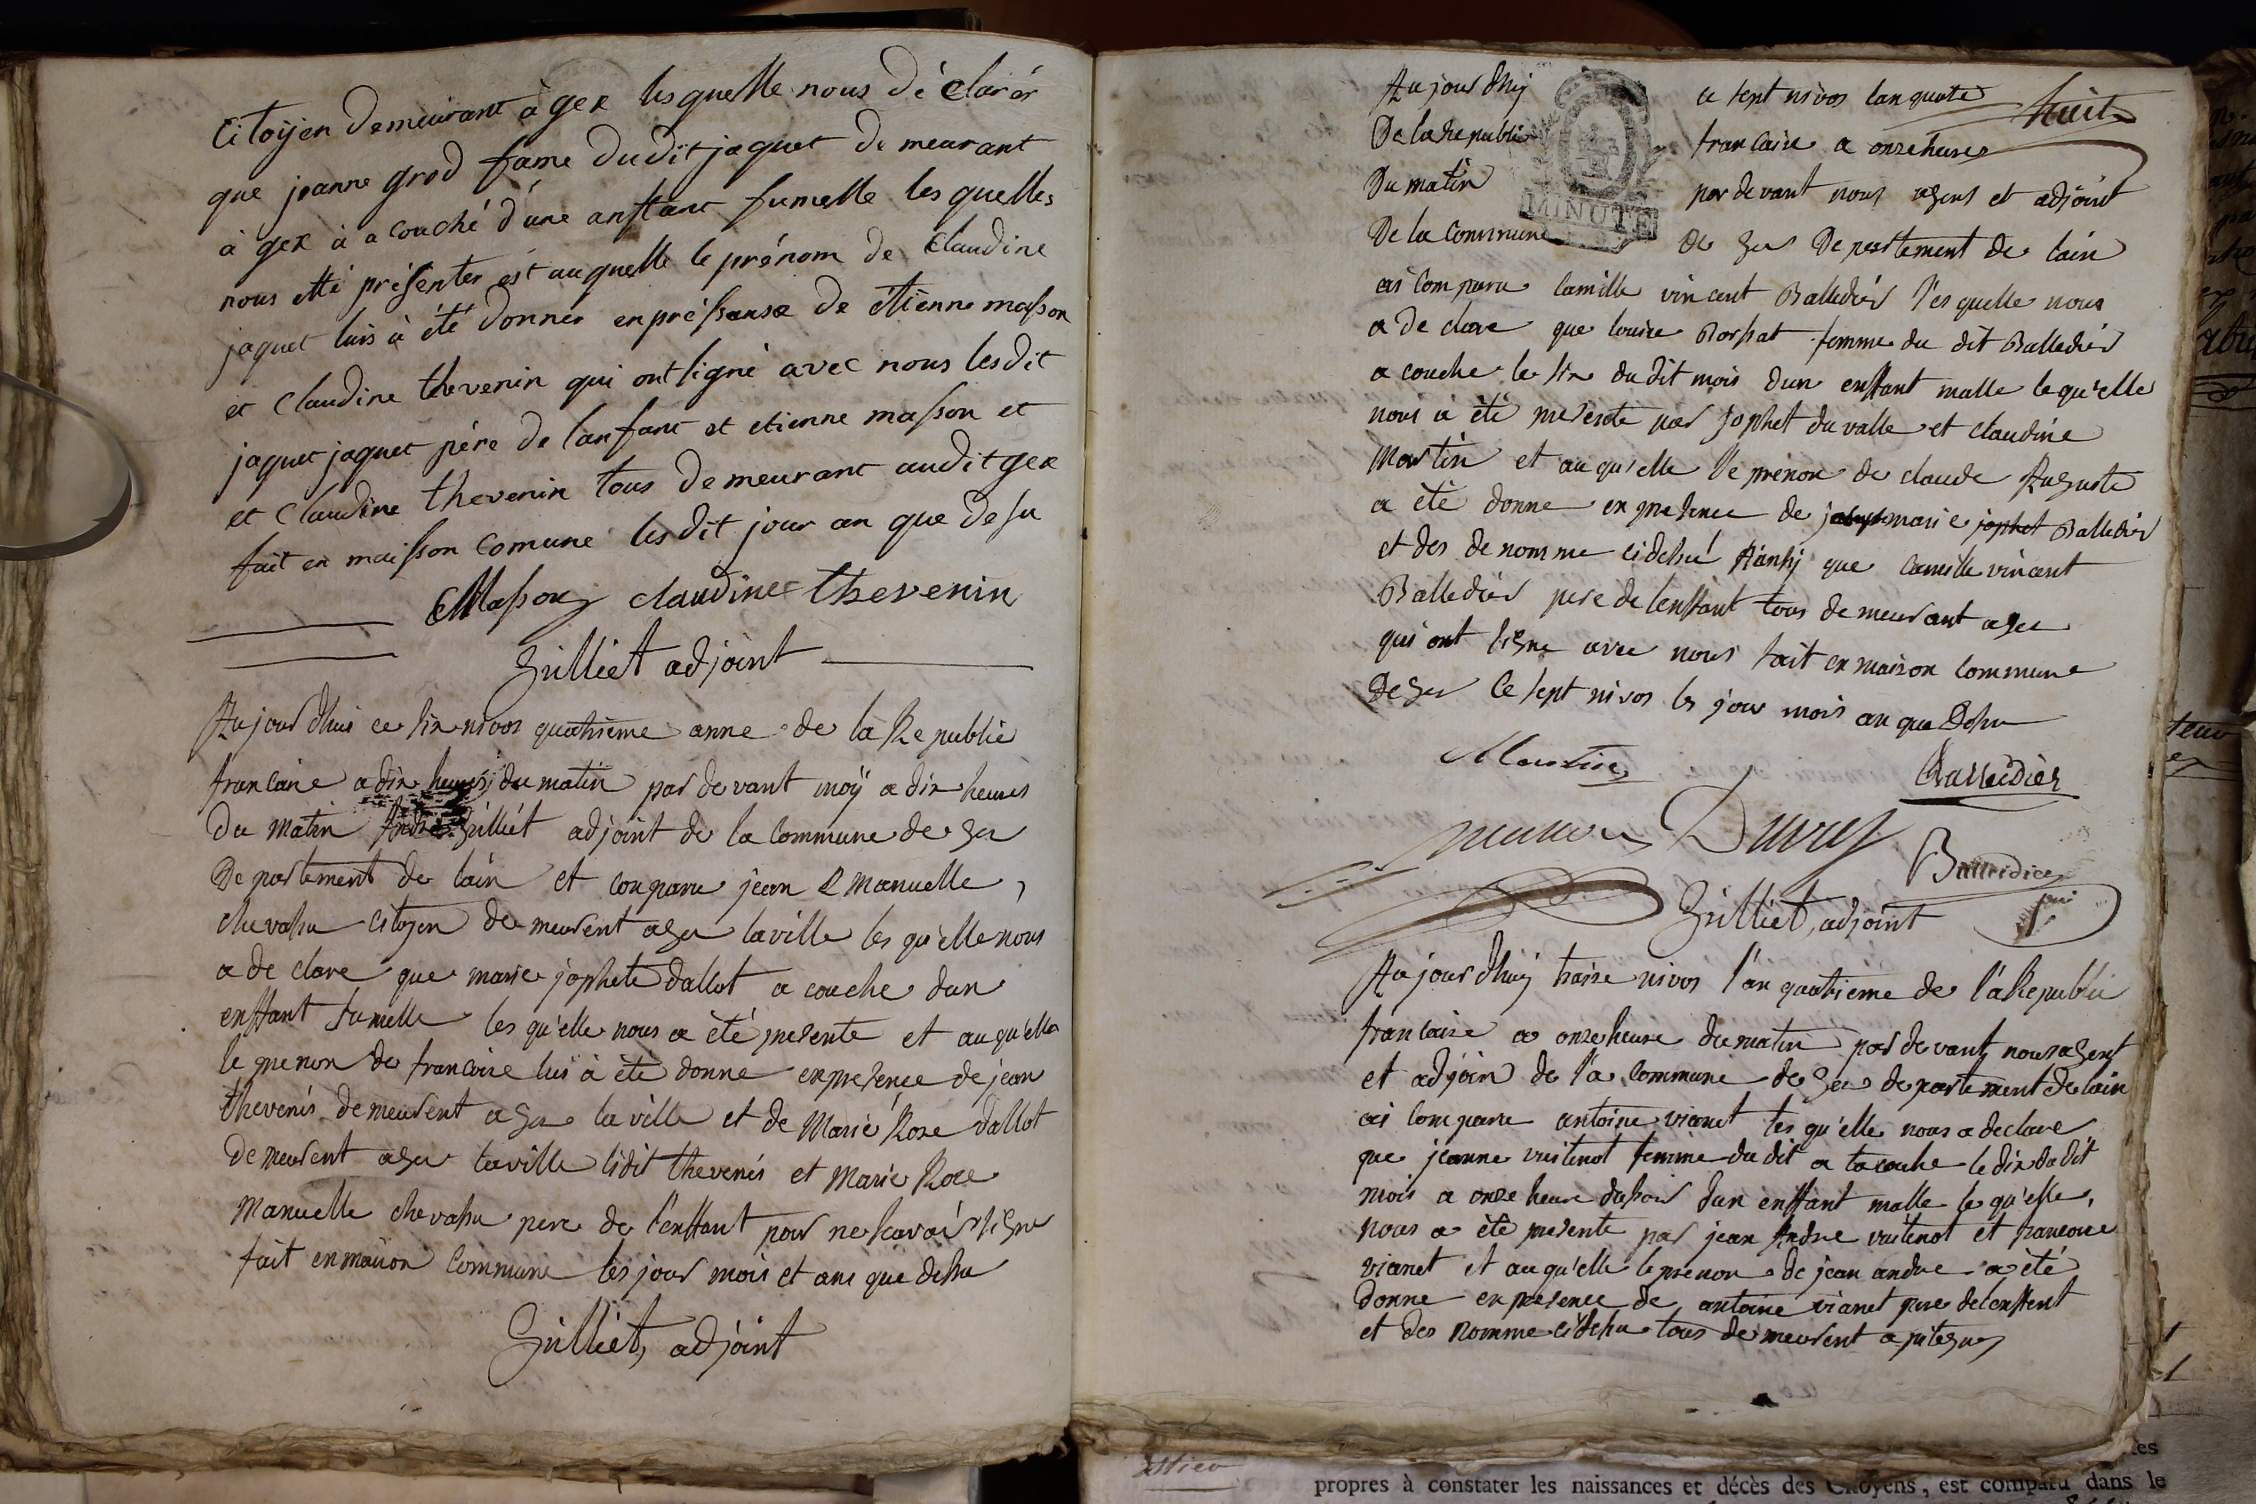 Citoÿen demeurant à gex lesquelle nous déclarér
que jeanne grod fame dudit jaquet demeurant
à gex à acouché d'une anfant fumelle les quelles
nous etté présenter est auquelle le prénom de Claudine
jaquet luis à été donner en préssense de étienne masson
et Claudine thevenin qui ont signé avec nous lesdit
jaquet jaquet pére de lanfant et etienne masson et
et Claudine thevenin tous demeurant audit gex
fait en maisson comune lesdit jour an que desu
EMasson claudine thevenin
Gilliet adjoint
Aujourdhui ce six nivos quatrieme anne de la Republic
francaise a dix heures du matin par devant moÿ a dix heures
Du matin Andre Gilliet adjoint de la commune de Gex
Departement de lain et conparu jean Emanuelle,
chevassu citoyen demeurent a Gex laville les qu'elle nous
a declare que marie josphete dallot a couche dun
enffant fumelle les qu'elle nous a été presente et auqu'elle
le prenon de francoise lui à été donne en presence de jean
thevenis demeurent a Gex la ville et de Marie Rose dallot
demeurent a Gex laville lidit thevenis et Marie Rose
Manuelle chevassu pere de l'enffant pour ne scavoir signe
fait en maison commune les jour mois et ans que dessu
Gilliet, adjoint
huit
Aujourdhuy ce sept nivos lan quatre
De la Republic francaise a onze heures
Du matin par devant nous agent et adjoint
MINUTE
De la Commune de Gex Departement de lain
ais comparu Camille vincent Balledier les quelle nous
a declare que louise Borssat femme du dit Balledier
a couche le six du dit mois dun enffant malle le qu'elle
nous a été presente par Josphet duvalle et claudine
Martin et auqu'elle le prenon de claude Auguste
a été donne en presence de marie josphet Balledier
et des denomme cidessu Ainsy que Camille vincent
Balledier pere de lenffant tous demeurant a gex
qui ont signe avec nous fait en maison commune
De Gex Ce sept nivos les jour mois an que Dessu
Martin Balleidier
Balleidier
Gilliet, adjoint
Aujourdhuy traise nivos l'an quatrieme de l'a Republic
francaise a onze heure du matin par devant nous agent
et adjoin de l'a commune de Gex departement de lain
ais comparu antoine vianet les qu'elle nous a declare
que jeanne vuitenot femme du dit a lacouche le dix du dit
mois a onze heure du soir dun enffant malle le qu'elle,
nous a été presente par jean Andre vuitenot et francoise
vianet et auqu'elle le prenon de jean andre a été
donne en presence de antoine vianet pere de lenffent
et des nomme cidessu tous demeurent a
propres à constater les naissances et décès des Citoyens, est comparu dans le